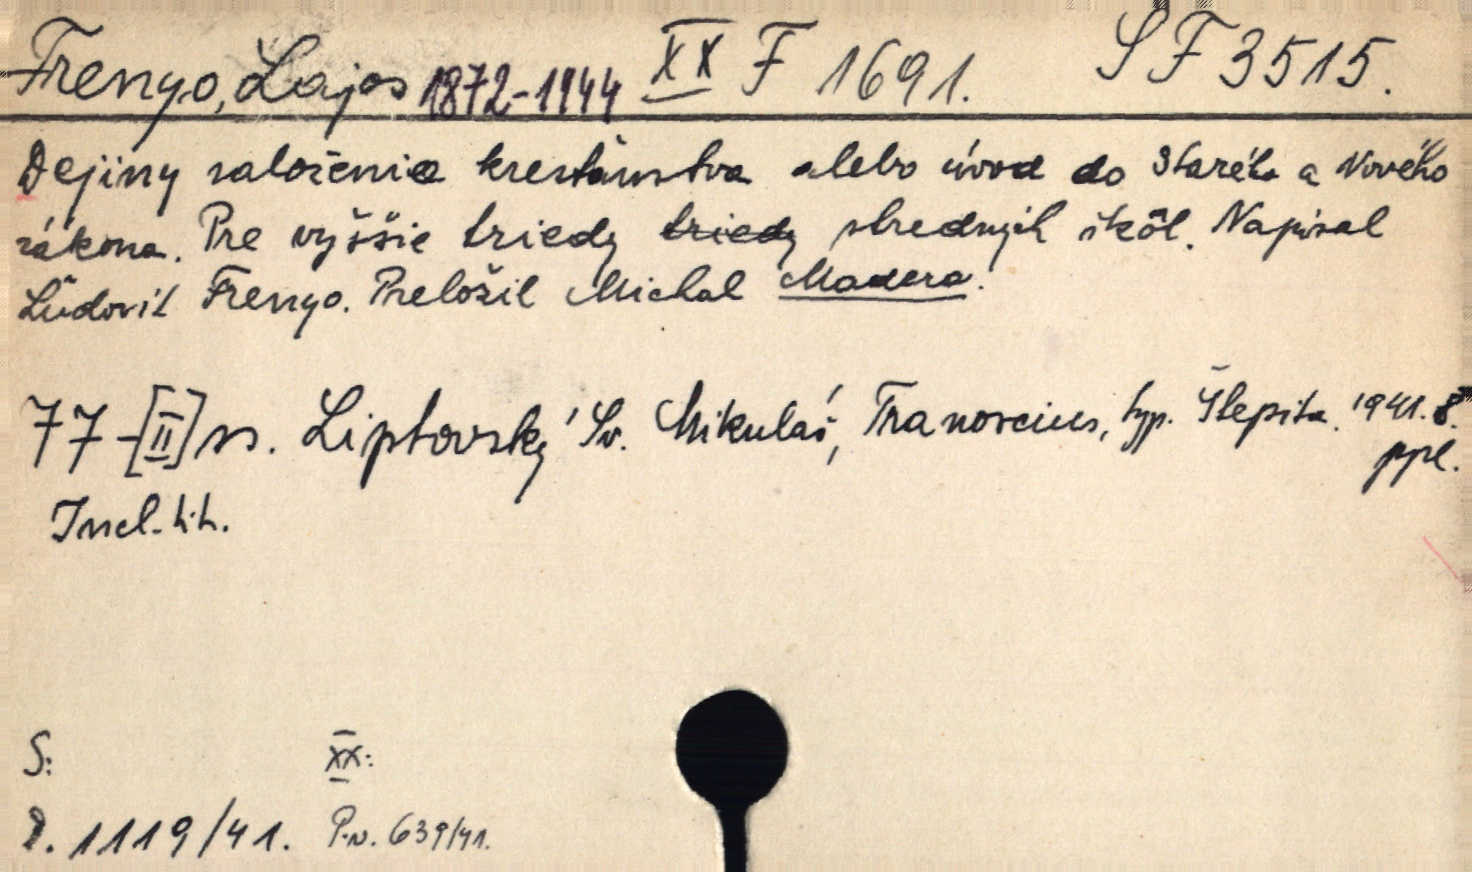 Frenyo, Lajos 1872-1944 XX F 1691. SF 3515.
Dejiny založenia kresťanstva alebo úvod do Starého a Nového
zákona. Pre vyššie triedy triedy stredných škôl. Napísal
Ľudovít Frenyo. Preložil Michal Madera.
77-[II] s. Liptovský Sv. Mikuláš, Tranoscius, typ. Šlepita. 1941. 8°
ppl.
Incl. tit.
S: XX:
D. 1119/41. P.n. 639/41.